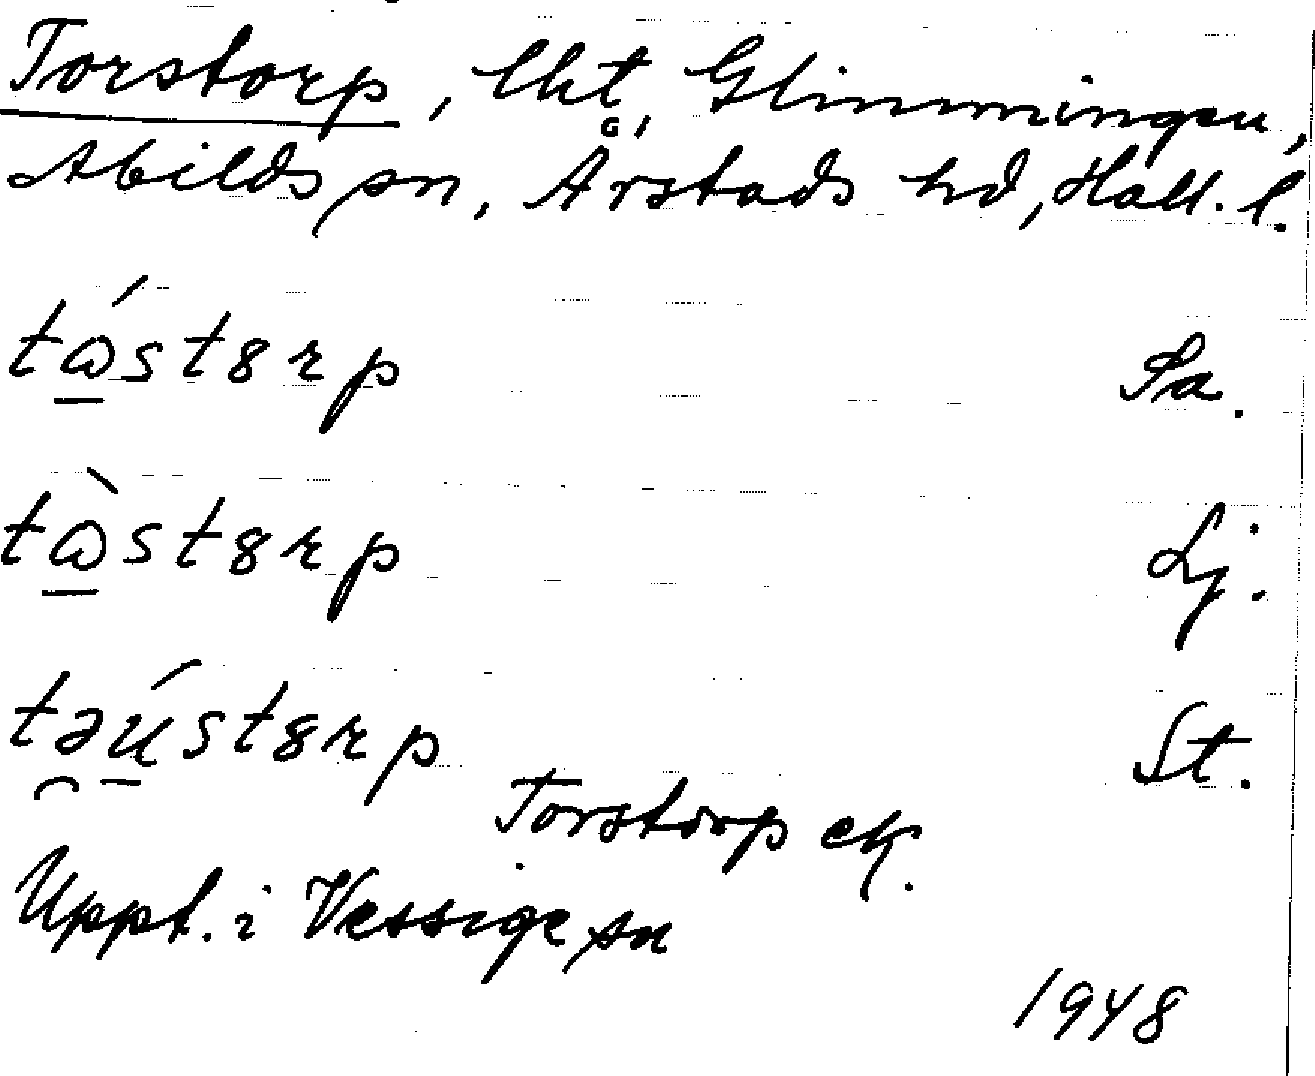 Torstorp, lht, Glimmingen,
Abilds sn, Årstads hd, Hall. l.
tɷ̲́st8rp Sa.
tɷ̲̀st8rp Lj.
təú̲st8rp St.
Torstorp ek.
Uppt. i Vessige sn
1948